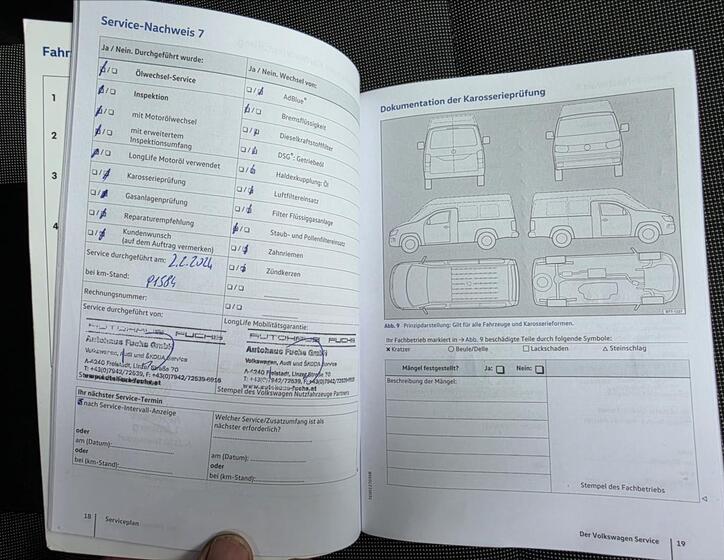 Fahr
1
2
3
4
Service-Nachweis 7
Ja / Nein. Durchgeführt wurde:
Ölwechsel-Service
Inspektion
mit Motorölwechsel
mit erweitertem
Inspektionsumfang
LongLife Motoröl verwendet
Karosserieprüfung
Gasanlagenprüfung
Reparaturempfehlung
Kundenwunsch
(auf dem Auftrag vermerken)
Service durchgeführt am: 2.2.2024
bei km-Stand: 91584
Rechnungsnummer:
Service durchgeführt von:
AUTOHAUS FUCHS
Autohaus Fuchs GmbH
Volkswagen, Audi und ŠKODA Service
A-4240 Freistadt, Linzer Straße 70
www.autohaus-fuchs.at
Ja / Nein. Wechsel von:
AdBlue®
Bremsflüssigkeit
Dieselkraftstofffilter
DSG®: Getriebeöl
Haldexkupplung: Öl
Luftfiltereinsatz
Filter Flüssiggasanlage
Staub- und Pollenfiltereinsatz
Zahnriemen
Zündkerzen
LongLife Mobilitätsgarantie:
AUTOHAUS FUCHS
Autohaus Fuchs GmbH
Volkswagen, Audi und ŠKODA Service
A-4240 Freistadt, Linzer Straße 70
www.autohaus-fuchs.at
Stempel des Volkswagen Nutzfahrzeuge Partners
Ihr nächster Service-Termin
nach Service-Intervall-Anzeige
oder
am (Datum):
oder
bei (km-Stand):
Welcher Service/Zusatzumfang ist als
nächster erforderlich?
am (Datum):
oder
bei (km-Stand):
18
Serviceplan
Dokumentation der Karosserieprüfung
Abb. 9 Prinzipdarstellung: Gilt für alle Fahrzeuge und Karosserieformen.
Ihr Fachbetrieb markiert in → Abb. 9 beschädigte Teile durch folgende Symbole:
✕ Kratzer ○ Beule/Delle □ Lackschaden △ Steinschlag
Mängel festgestellt? Ja: Nein:
Beschreibung der Mängel:
Stempel des Fachbetriebs
Der Volkswagen Service
19